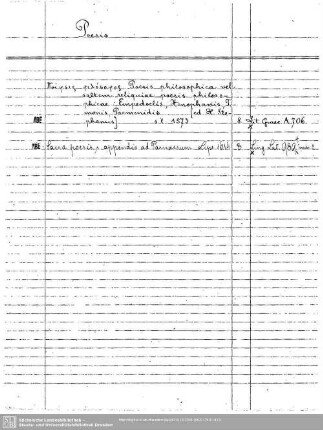 Poesis
Ποίησις φιλόσοφος Poesis philosophica vel
saltem reliquiae poesis philoso-
phicae: Empedoclis, Xenophanis, Ti-
monis, Parmenidis [ed H. Ste-
phanus] s. l. 1573 8. Lit. Graec. A, 706.
Sacra poesis, appendix ad Parnassum Lips 8. Ling. Lat.
Sächsische Landesbibliothek
Staats- und Universitätsbibliothek Dresden